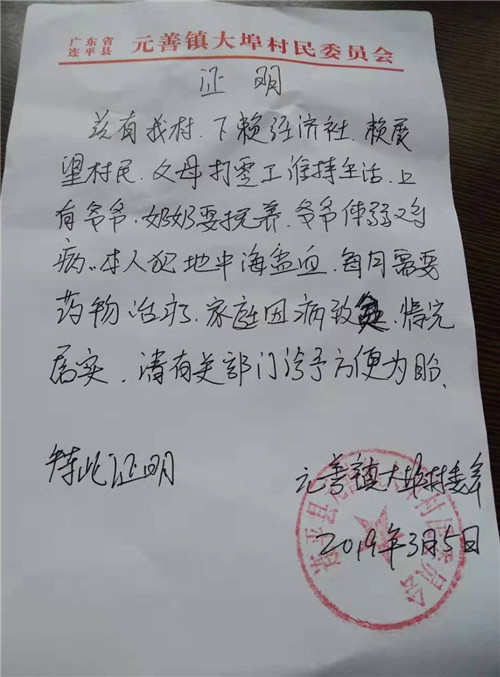 广东省
连平县
元善镇大埠村民委员会
证明
兹有我村.下赖经济社.赖展
望村民.父母打零工维持生活.上
有爷爷.奶奶要抚养.爷爷体弱又多
病.本人犯地中海盆血.每月需要
药物治疗.家庭因病致贫.情况
属实.请有关部门给予方便为盼.
特此证明
元善镇大埠村委会
2019年3月5日